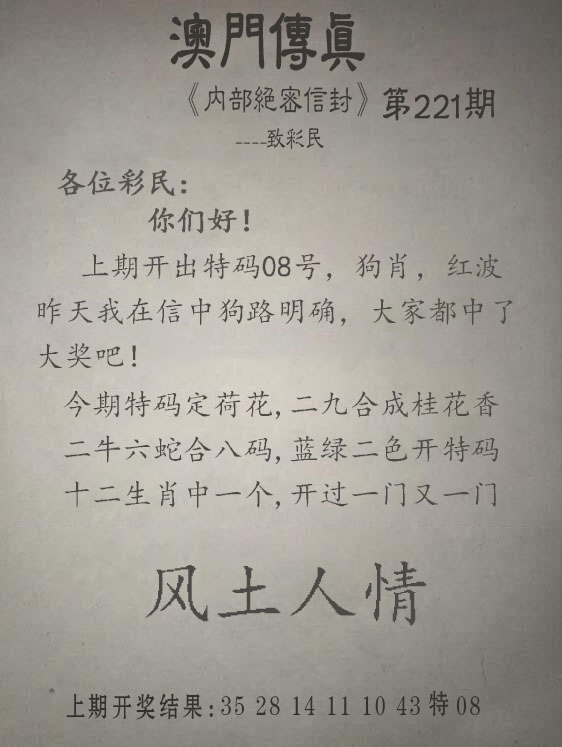 澳門傳眞
《内部絕密信封》第221期
----致彩民
各位彩民：
你们好！
上期开出特码08号，狗肖，红波
昨天我在信中狗路明确，大家都中了
大奖吧！
今期特码定荷花,二九合成桂花香
二牛六蛇合八码,蓝绿二色开特码
十二生肖中一个,开过一门又一门
风土人情
上期开奖结果:35 28 14 11 10 43 特 08